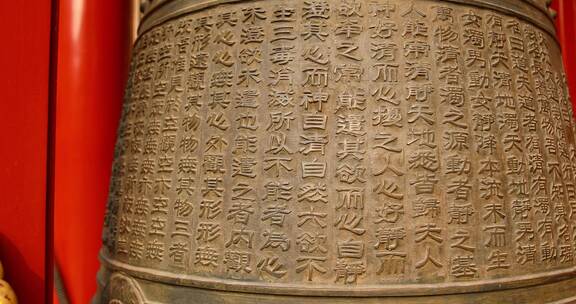 名曰道夫道者有清有濁有動
有靜天清地濁天動地靜男清
女濁男動女靜降本流末而生
萬物清者濁之源動者靜之基
人能常清靜天地悉皆歸夫人
神好清而心擾之人心好靜而
欲牽之常能遣其欲而心自靜
澄其心而神自清自然六欲不
生三毒消滅所以不能者為心
未澄欲未遣也能遣之者內觀
其心心無其心外觀其形形無
其形遠觀其物物無其物三者
既悟唯見於空觀空亦空空無